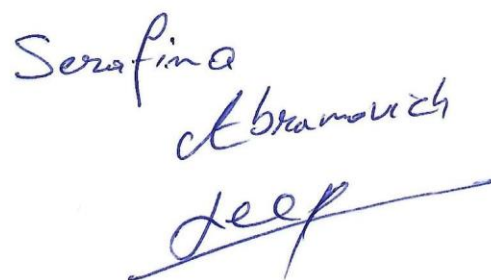 Serafina
Abramovich